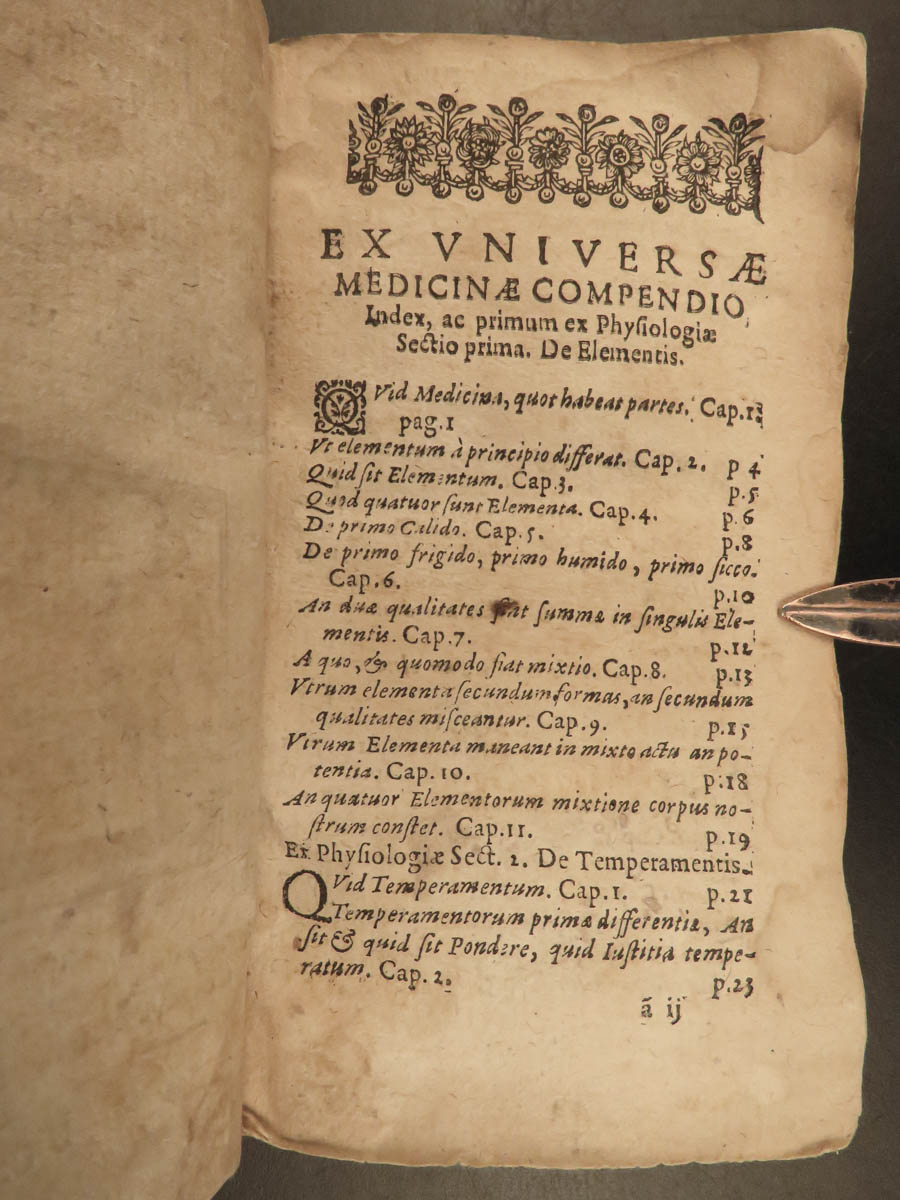 EX VNIVERSÆ
MEDICINÆ COMPENDIO
Index, ac primum ex Physiologiæ
Sectio prima. De Elementis.
QVid Medicina, quot habeat partes. Cap.1.
pag.1
Vt elementum à principio differat. Cap. 2. p 4
Quid sit Elementum. Cap.3. p.5
Quod quatuor sunt Elementa. Cap.4. p.6
De primo Calido. Cap.5. p.8
De primo frigido, primo humido, primo sicco.
Cap.6. p.10
An duæ qualitates sint summæ in singulis Ele-
mentis. Cap.7. p.12
A quo, & quomodo fiat mixtio. Cap.8. p.13
Vtrum elementa secundum formas, an secundum
qualitates misceantur. Cap.9. p.15
Vtrum Elementa maneant in mixto actu an po-
tentia. Cap.10. p.18
An quatuor Elementorum mixtione corpus no-
strum constet. Cap.11. p.19
Ex Physiologiæ Sect. 2. De Temperamentis.
QVid Temperamentum. Cap.1. p.21
Temperamentorum primæ differentiæ, An
sit & quid sit Pondere, quid Iustitia tempe-
ratum. Cap.2. p.23
ã ij